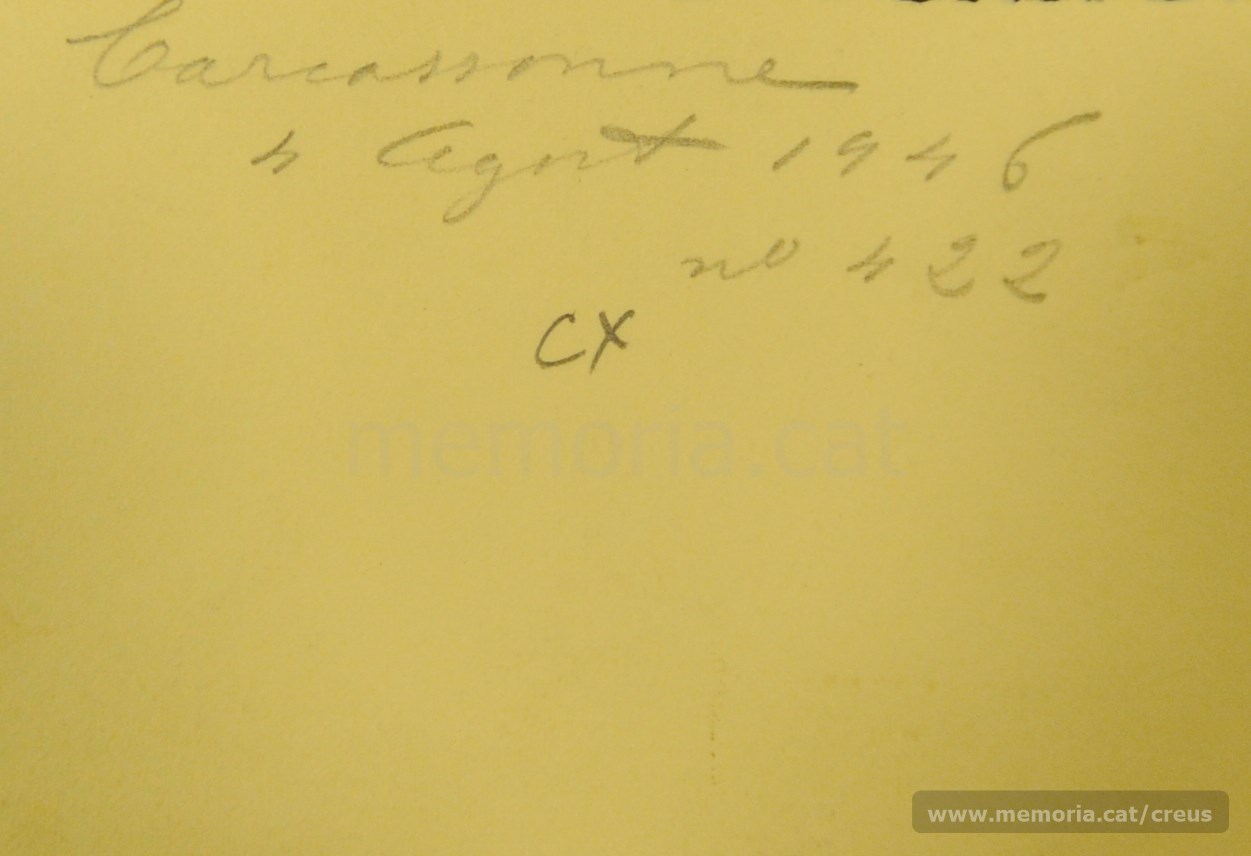 Carcassonne
4 Agost 1946
nº 422
CX
memoria.cat
www.memoria.cat/creus